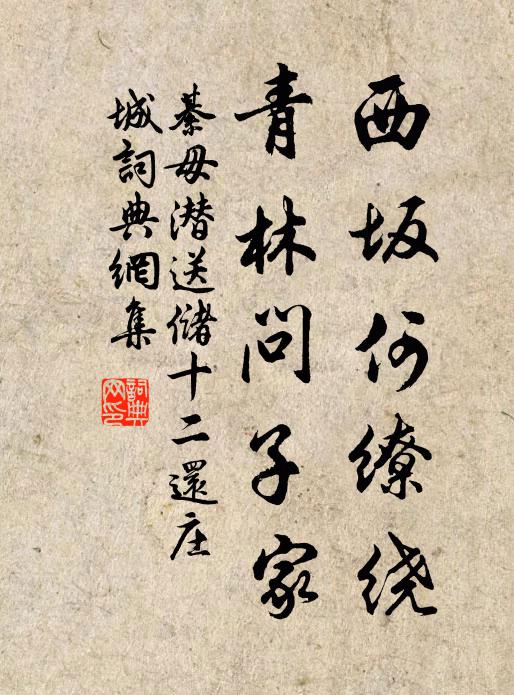 西坂何缭绕
青林问子家
綦毋潜送储十二還庄
城詞典網集
詞典
网印